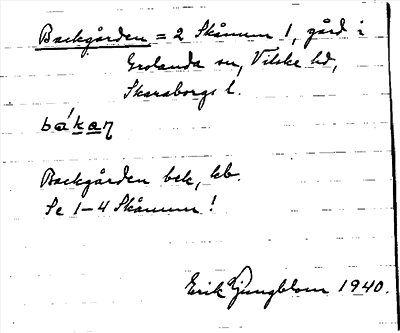 Backgården = 2 Skånum 1, gård i
Grolanda sn, Vilske hd,
Skaraborgs l.
bákaη
Backgården bek, kb.
Se 1-4 Skånum!
Erik Ljungblom 1940.